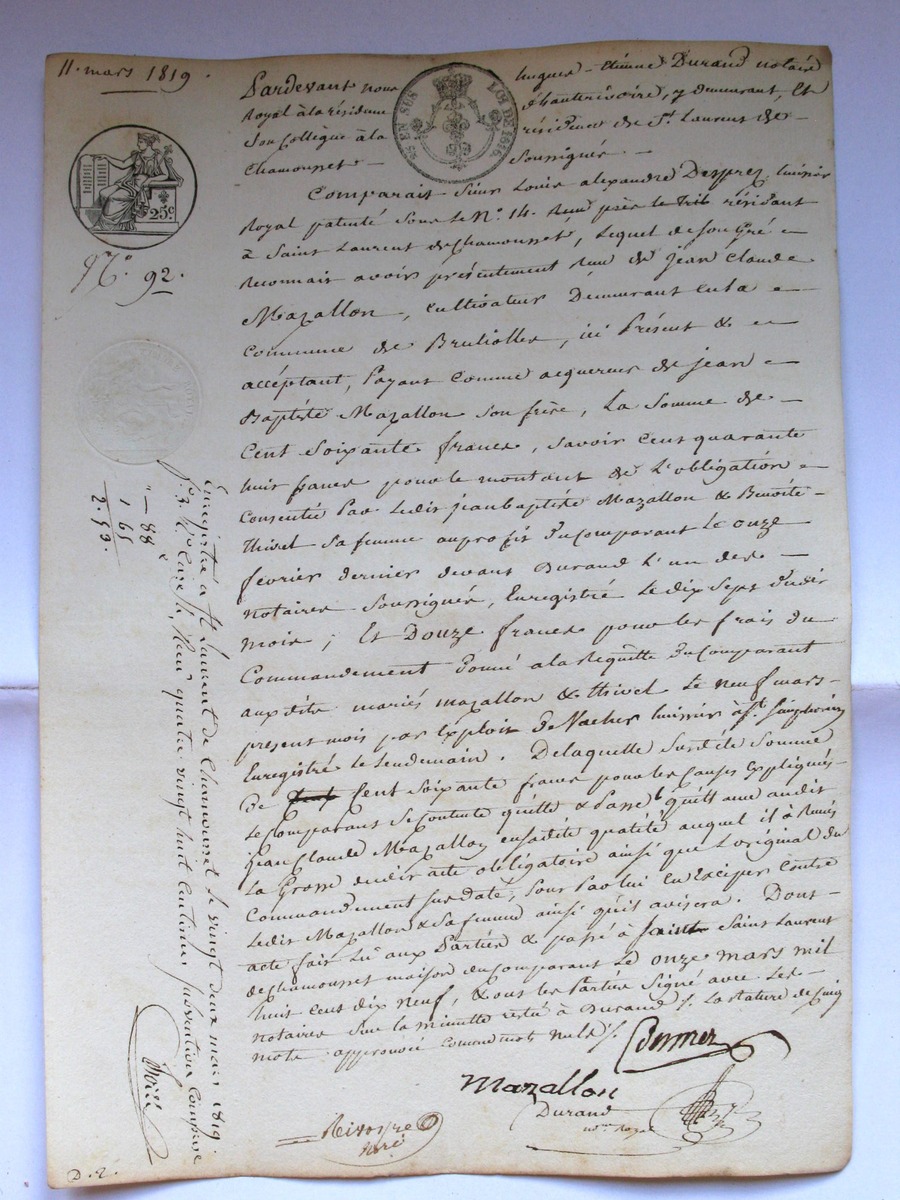 11. mars 1819.
Pardevant nous hugues-étienne Durand notaire
Royal à la résidence d'hauterivoire, y demeurant, Et
Son Collègue à la résidence de St. Laurent de
Chamousset Soussignés.
25 EN SUS LOI DE 1816.
25c.
No. 92.
Comparait Sieur Louis alexandre Desprez, huissier
Royal patenté Sous le No. 14. près le trib résidant
à Saint Laurent de Chamousset, Lequel de Son Gré
Reconnait avoir présentement Reçu de Jean Claude
Mazallon, Cultivateur Demeurant en la
Commune de Bruliolles, ici Présent &
accéptant, Payant Comme acquereur de jean
Baptiste Mazallon Son frère, La Somme de
Cent Soixante francs, Savoir Cent quarante
huit francs pour le montant de L'obligation
Consentie Par Ledit jean baptiste Mazallon & Benoite
thivel Sa femme au profit du Comparant Le onze
février dernier devant Durand L'un des
notaires Soussignés, Enregistré Le dix Sept dudit
mois; Et Douze francs pour les frais du
Commandement Donné a la Requête du Comparant
auxdits mariés mazallon & thivel Le neuf mars
présent mois par Exploit De Vacher huissier à St. Simphorien
Enregistré Le Lendemain. De laquelle Susdite Somme
De Cent Soixante francs pour les Causes Expliquées
Le Comparant Se Contente quitte & Passe quittance audit
jean Claude Mazallon en sadite qualité auquel il à Remis
La Grosse dudit acte obligatoire ainsi que L'original du
Commandement Susdaté, pour Par lui En Exciper Contre
Ledit Mazallon & Sa femme ainsi qu'il avisera. Dont
acte fait Lû aux Parties & passé à Saint Laurent
de Chamousset maison du Comparant Le onze mars mil
huit Cent dix neuf, & ont les Parties Signé avec Les
notaires Sur la minutte restée à Durand /. La rature de Cinq
mots approuvée Comme mots Nuls /.
Mazallon
Durand
nre Royal
Enregistré à St. Laurent de Chamousset le vingt deux mars 1819.
fo. 3. Ro. Case 4, Reçu quatre vingt huit centimes subvention comprise
" — 88 c
1 65
2. 53.
D. 2.